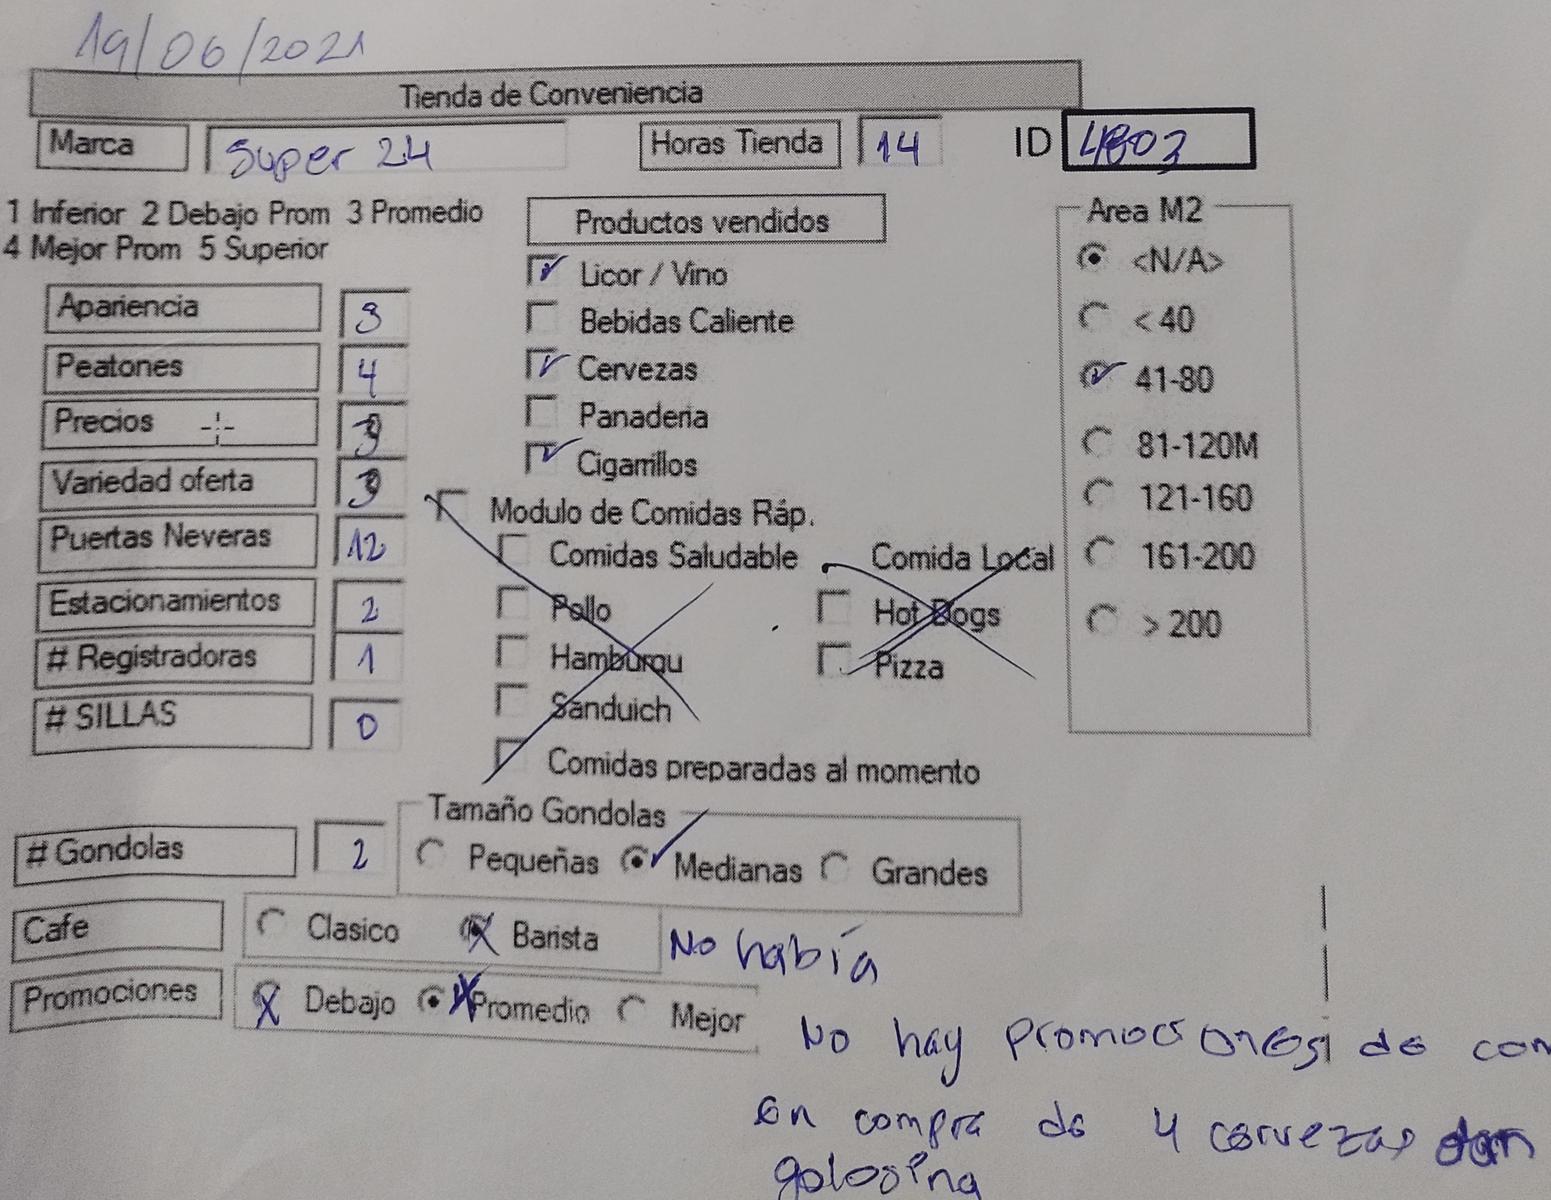 19/06/2021
Tienda de Conveniencia
Marca Super 24 Horas Tienda 14 ID 4803
1 Inferior 2 Debajo Prom 3 Promedio
4 Mejor Prom 5 Superior
Productos vendidos
Licor / Vino
Bebidas Caliente
Cervezas
Panaderia
Cigarrillos
Area M2
<N/A>
< 40
41-80
81-120M
121-160
161-200
> 200
Apariencia 3
Peatones 4
Precios 3
Variedad oferta 3
Puertas Neveras 12
Estacionamientos 2
# Registradoras 1
# SILLAS 0
Modulo de Comidas Ráp.
Comidas Saludable Comida Local
Pollo Hot Dogs
Hamburgu Pizza
Sanduich
Comidas preparadas al momento
Tamaño Gondolas
# Gondolas 2 Pequeñas Medianas Grandes
Cafe Clasico Barista No había
Promociones Debajo Promedio Mejor
No hay promociones de com
en compra de 4 cervezas dan
golosina